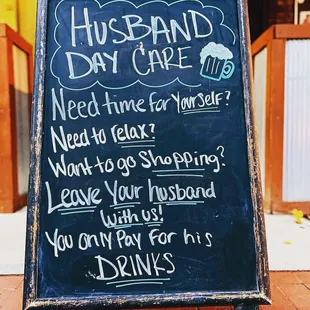 HUSBAND
DAY CARE
Need time for Yourself?
Need to relax?
Want to go Shopping?
Leave Your husband
with us!
You only Pay for his
DRINKS